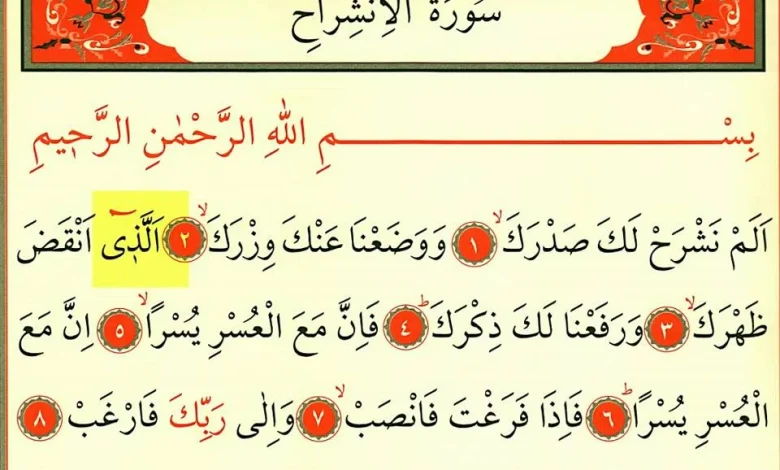 سُورَةُ الْاِنْشِرَاحِ
بِسْمِ اللهِ الرَّحْمٰنِ الرَّح۪يمِ
اَلَمْ نَشْرَحْ لَكَ صَدْرَكَۙ ﴿١﴾ وَوَضَعْنَا عَنْكَ وِزْرَكَۙ ﴿٢﴾ اَلَّذ۪ٓى اَنْقَضَ
ظَهْرَكَۙ ﴿٣﴾ وَرَفَعْنَا لَكَ ذِكْرَكَۜ ﴿٤﴾ فَاِنَّ مَعَ الْعُسْرِ يُسْرًاۙ ﴿٥﴾ اِنَّ مَعَ
الْعُسْرِ يُسْرًاۜ ﴿٦﴾ فَاِذَا فَرَغْتَ فَانْصَبْۙ ﴿٧﴾ وَاِلٰى رَبِّكَ فَارْغَبْ ﴿٨﴾